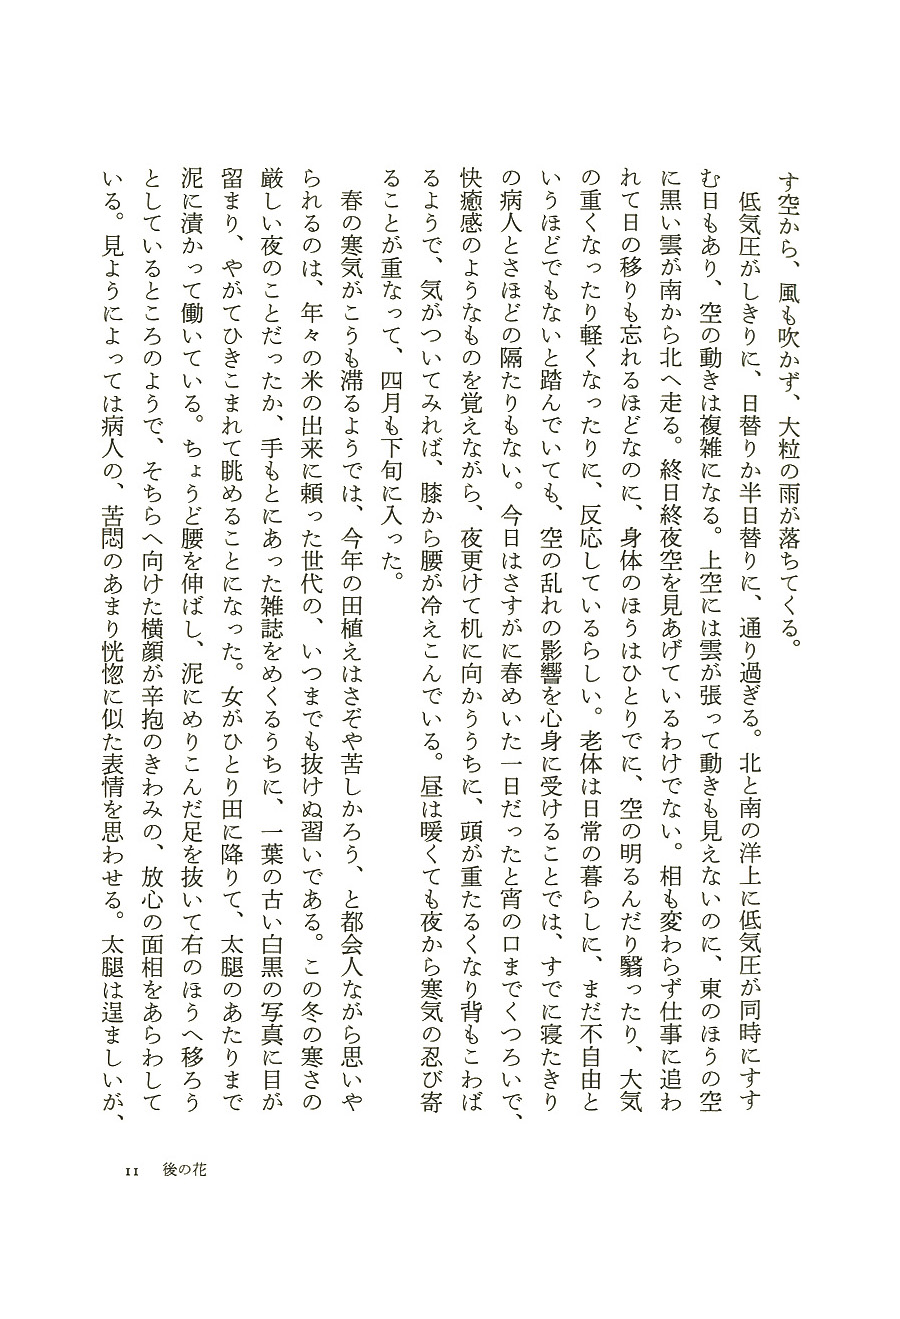 す空から、風も吹かず、大粒の雨が落ちてくる。
　低気圧がしきりに、日替りか半日替りに、通り過ぎる。北と南の洋上に低気圧が同時にすす
む日もあり、空の動きは複雑になる。上空には雲が張って動きも見えないのに、東のほうの空
に黒い雲が南から北へ走る。終日終夜空を見あげているわけでない。相も変わらず仕事に追わ
れて日の移りも忘れるほどなのに、身体のほうはひとりでに、空の明るんだり翳ったり、大気
の重くなったり軽くなったりに、反応しているらしい。老体は日常の暮らしに、まだ不自由と
いうほどでもないと踏んでいても、空の乱れの影響を心身に受けることでは、すでに寝たきり
の病人とさほどの隔たりもない。今日はさすがに春めいた一日だったと宵の口までくつろいで、
快癒感のようなものを覚えながら、夜更けて机に向かううちに、頭が重たるくなり背もこわば
るようで、気がついてみれば、膝から腰が冷えこんでいる。昼は暖くても夜から寒気の忍び寄
ることが重なって、四月も下旬に入った。
　春の寒気がこうも滞るようでは、今年の田植えはさぞや苦しかろう、と都会人ながら思いや
られるのは、年々の米の出来に頼った世代の、いつまでも抜けぬ習いである。この冬の寒さの
厳しい夜のことだったか、手もとにあった雑誌をめくるうちに、一葉の古い白黒の写真に目が
留まり、やがてひきこまれて眺めることになった。女がひとり田に降りて、太腿のあたりまで
泥に漬かって働いている。ちょうど腰を伸ばし、泥にめりこんだ足を抜いて右のほうへ移ろう
としているところのようで、そちらへ向けた横顔が辛抱のきわみの、放心の面相をあらわして
いる。見ようによっては病人の、苦悶のあまり恍惚に似た表情を思わせる。太腿は逞ましいが、
11　後の花